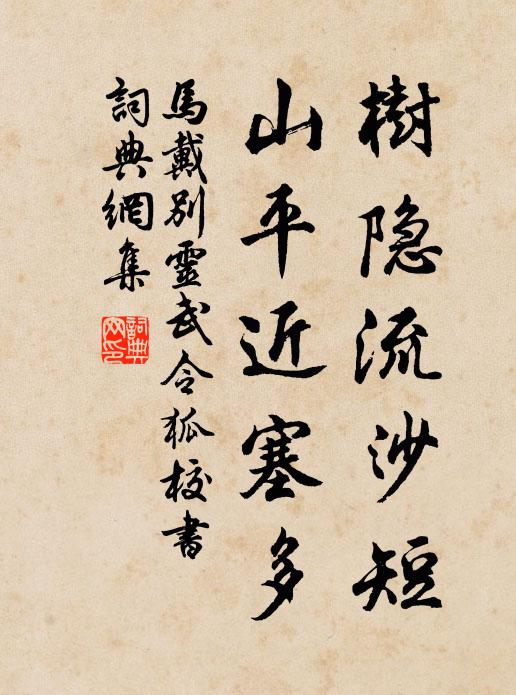 樹隐流沙短
山平近塞多
馬戴別靈武令狐校書
詞典網集
詞典网印